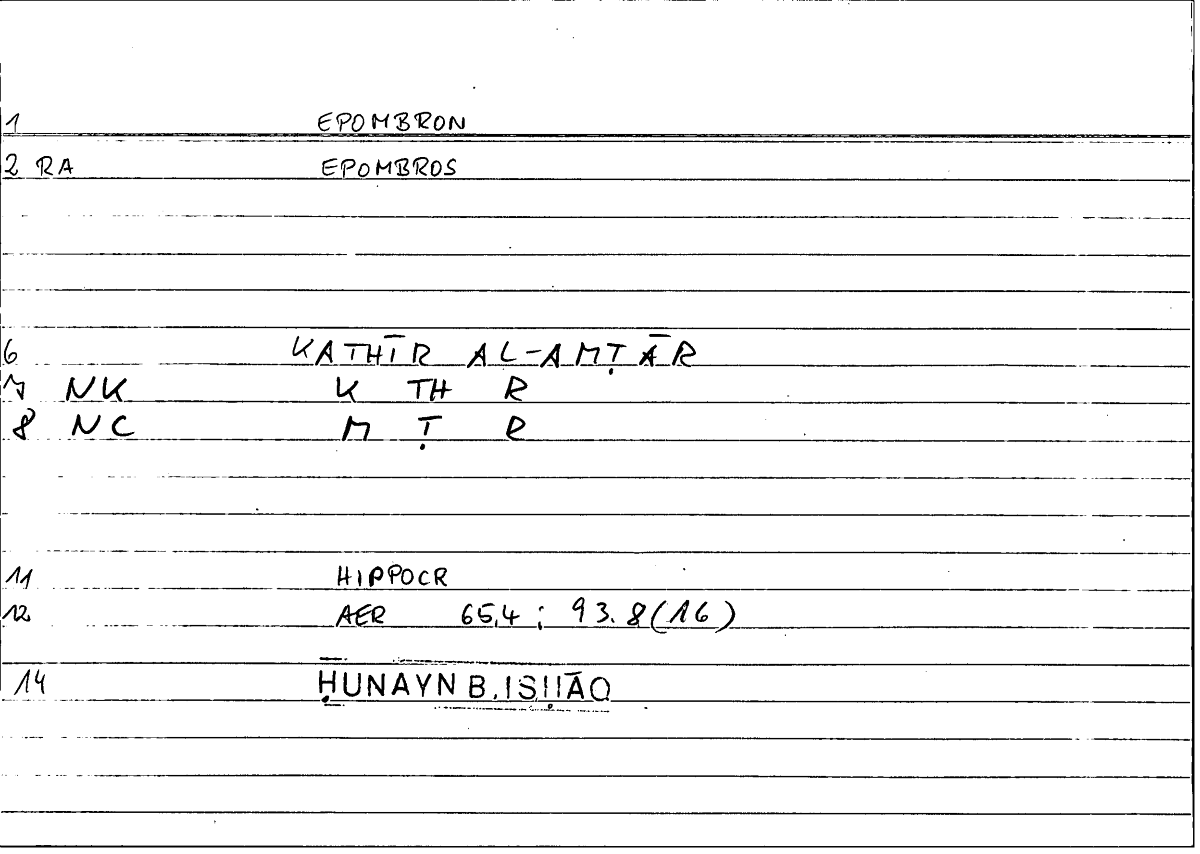 1 EPOMBRON
2 RA EPOMBROS
6 KATHĪR AL-AMṬĀR
7 NK K TH R
8 NC M Ṭ R
11 HIPPOCR
12 AER 65,4 ; 93.8(16)
14 ḤUNAYN B. ISḤĀQ